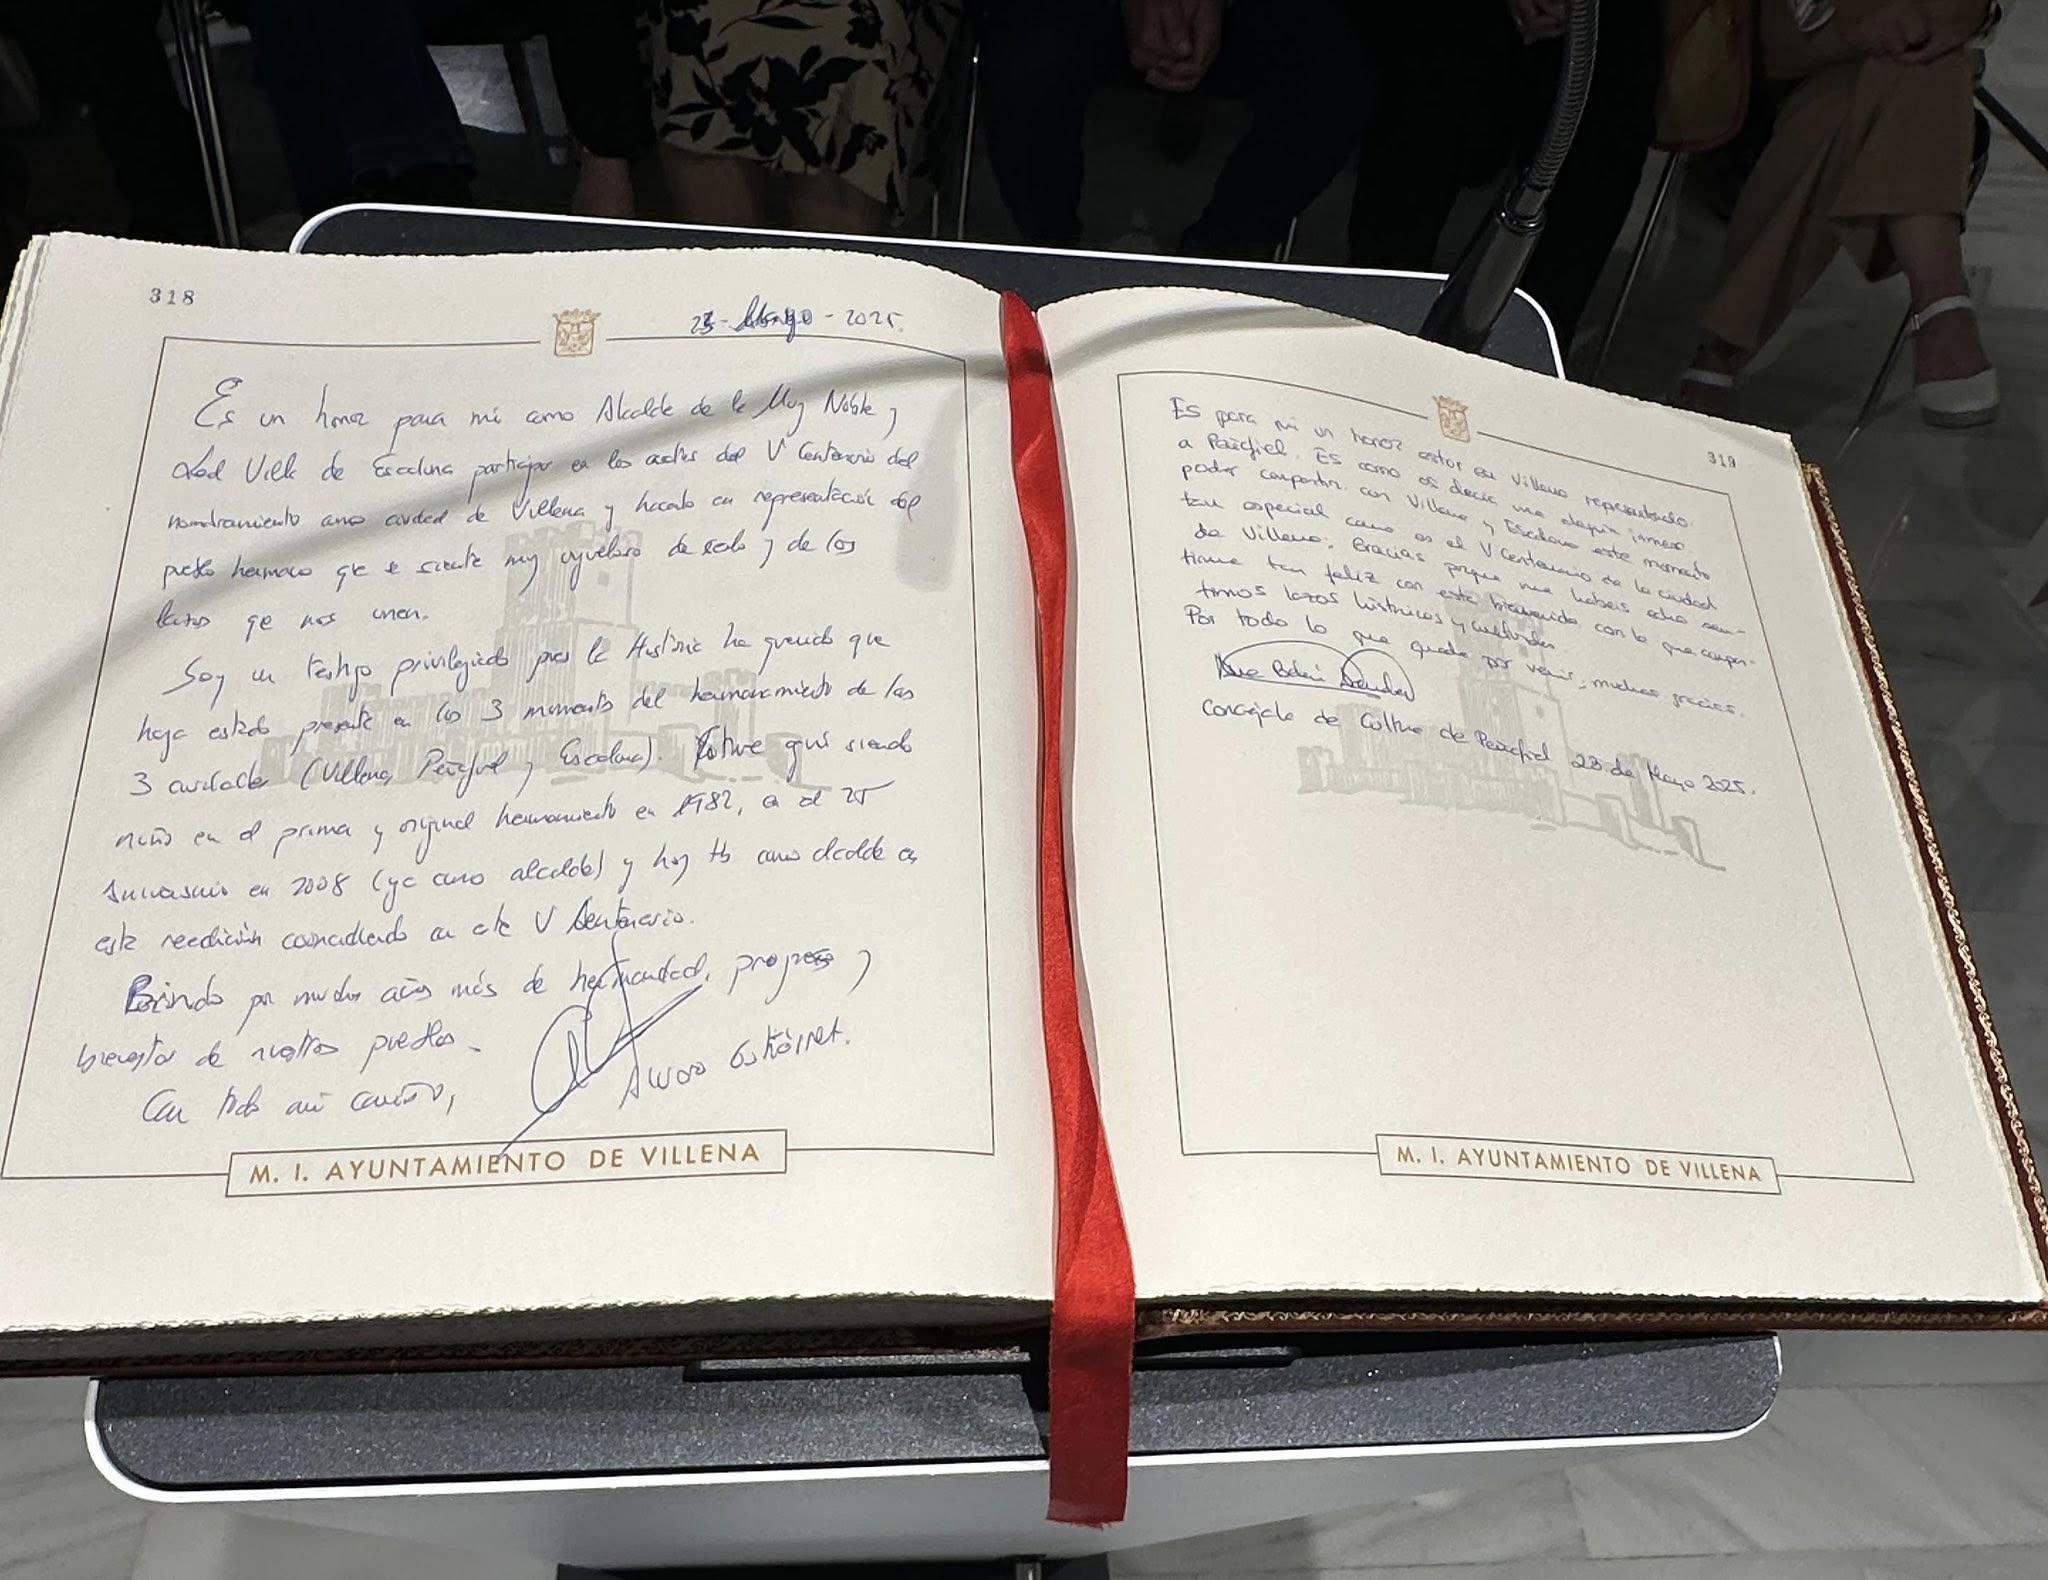 318
23 - Mayo - 2025.
Es un honor para mi como Alcalde de la Muy Noble y
Leal Villa de Escalona participar en los actos del V Centenario del
nombramiento como ciudad de Villena y hacerlo en representación del
pueblo hermano que se siente muy orgulloso de serlo y de los
lazos que nos unen.
Soy un testigo privilegiado pues la Historia ha querido que
haya estado presente en los 3 momentos del hermanamiento de las
3 ciudades (Villena, Peñafiel y Escalona). Estuve aquí siendo
niño en el primer y original hermanamiento en 1982, en el 25
Aniversario en 2008 (ya como alcalde) y hoy tb como alcalde en
esta reedición coincidiendo en este V Centenario.
Brindo por muchos años más de hermandad, progreso y
bienestar de nuestros pueblos.
Con todo mi cariño,
Alvaro Gutiérrez.
M. I. AYUNTAMIENTO DE VILLENA
319
Es para mi un honor estar en Villena representando
a Peñafiel. Es como os decía una alegría inmensa
poder compartir con Villena y Escalona este momento
tan especial como es el V Centenario de la ciudad
de Villena. Gracias porque me habéis hecho sen-
tirme tan feliz con esta bienvenida con la que compar-
timos lazos históricos y culturales
Por todo lo que quede por venir, muchas gracias.
Ana Belén
Concejala de Cultura de Peñafiel 23 de Mayo 2025.
M. I. AYUNTAMIENTO DE VILLENA